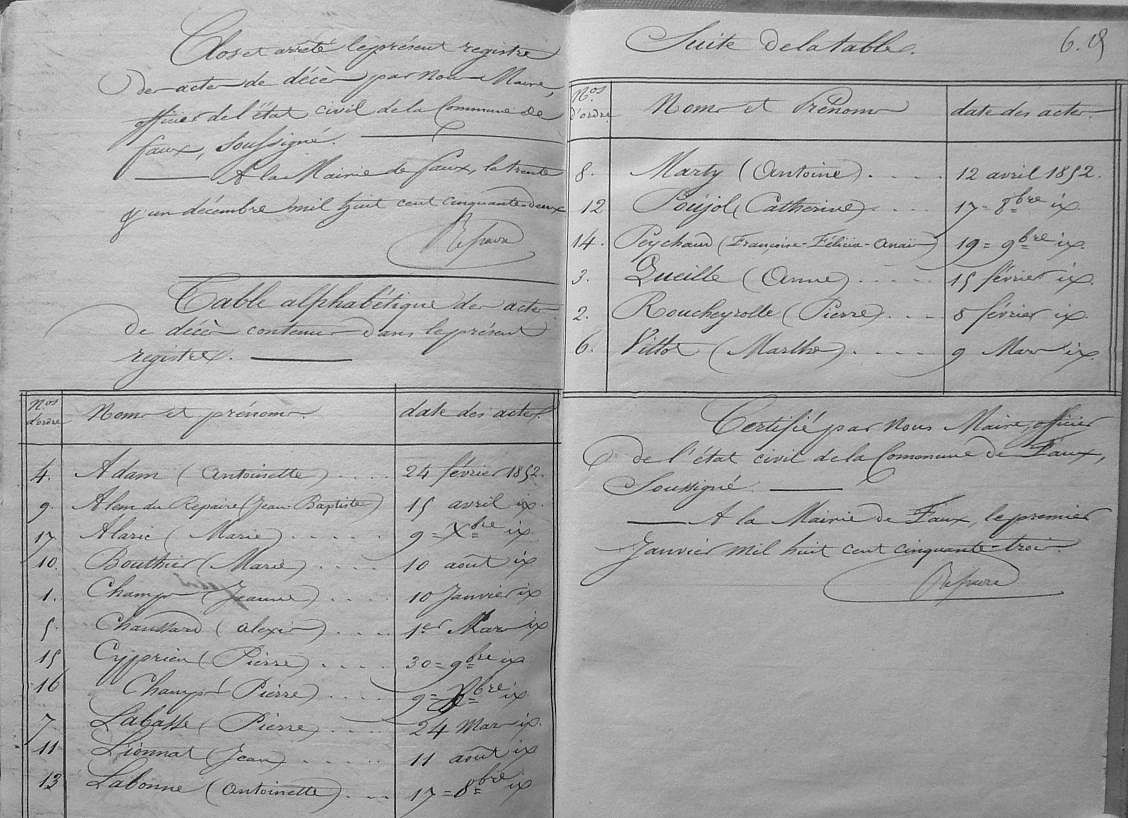 Clos et arrêté le présent registre
des actes de décès par nous Maire,
officier de l'état civil de la Commune de
faux, soussigné.
A la Mairie de faux, le trente
et un décembre mil huit cent cinquante deux
Table alphabétique des actes
de décès contenus dans le présent
registre.
Nos d'ordre Noms et prénoms. date des actes.
4. Adam (Antoinette) .... 24 février 1852.
9. Alem du Repaire (Jean Baptiste) 15 avril ix.
17 Alaric (Marie) ..... 9 = Xbre ix.
10. Bouthier (Marie) .... 10 août ix
1. Champs (Jeanne) .... 10 Janvier ix
5. Chaussard (Alexis) .... 1er Mars ix
15 Cyprien (Pierre) .... 30 = 9bre ix
16 Champs (Pierre) .... 9 = Xbre ix
7. Labasse (Pierre) .... 24 Mars ix.
11 Lionnat (Jean) ..... 11 août ix
13 Labonne (Antoinette) ... 17 = 8bre ix
Suite de la table.
Nos. d'ordre Noms et Prénoms date des actes.
8. Marty (Antoine) .... 12 avril 1852.
12 Poujol (Catherine) .... 17 = 8bre ix
14. Peychaud (Françoise-Félicia-Anaïs) 19 = 9bre ix
3. Queille (Anne) ..... 15 février ix.
2. Roucheyrolle (Pierre) ... 8 février ix.
6. Villot (Marthe) .... 9 Mars ix
Certifié par nous Maire, officier
de l'état civil de la Commune de Faux,
Soussigné.
A la Mairie de Faux, le premier
Janvier mil huit cent cinquante-trois